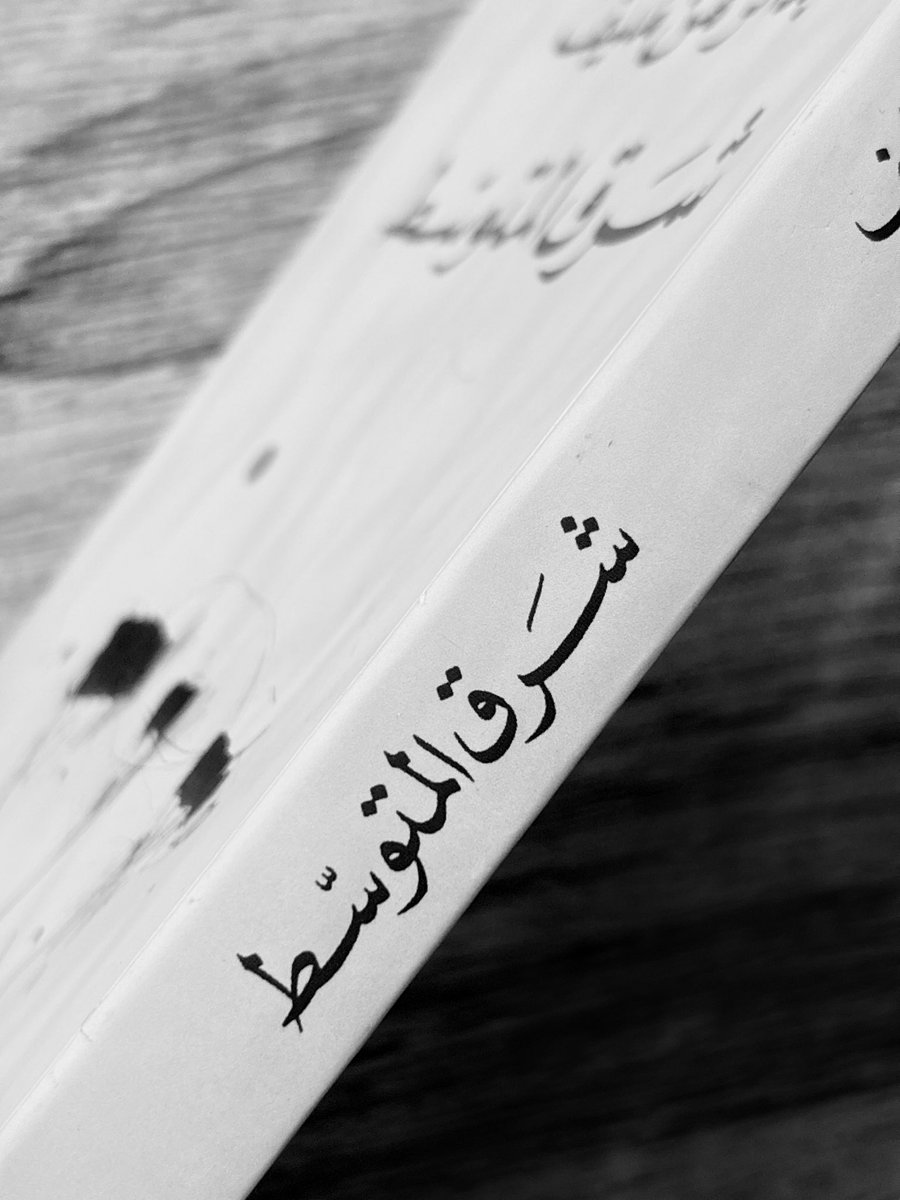 شَرق المتوسّط
شَرق المتوسّط